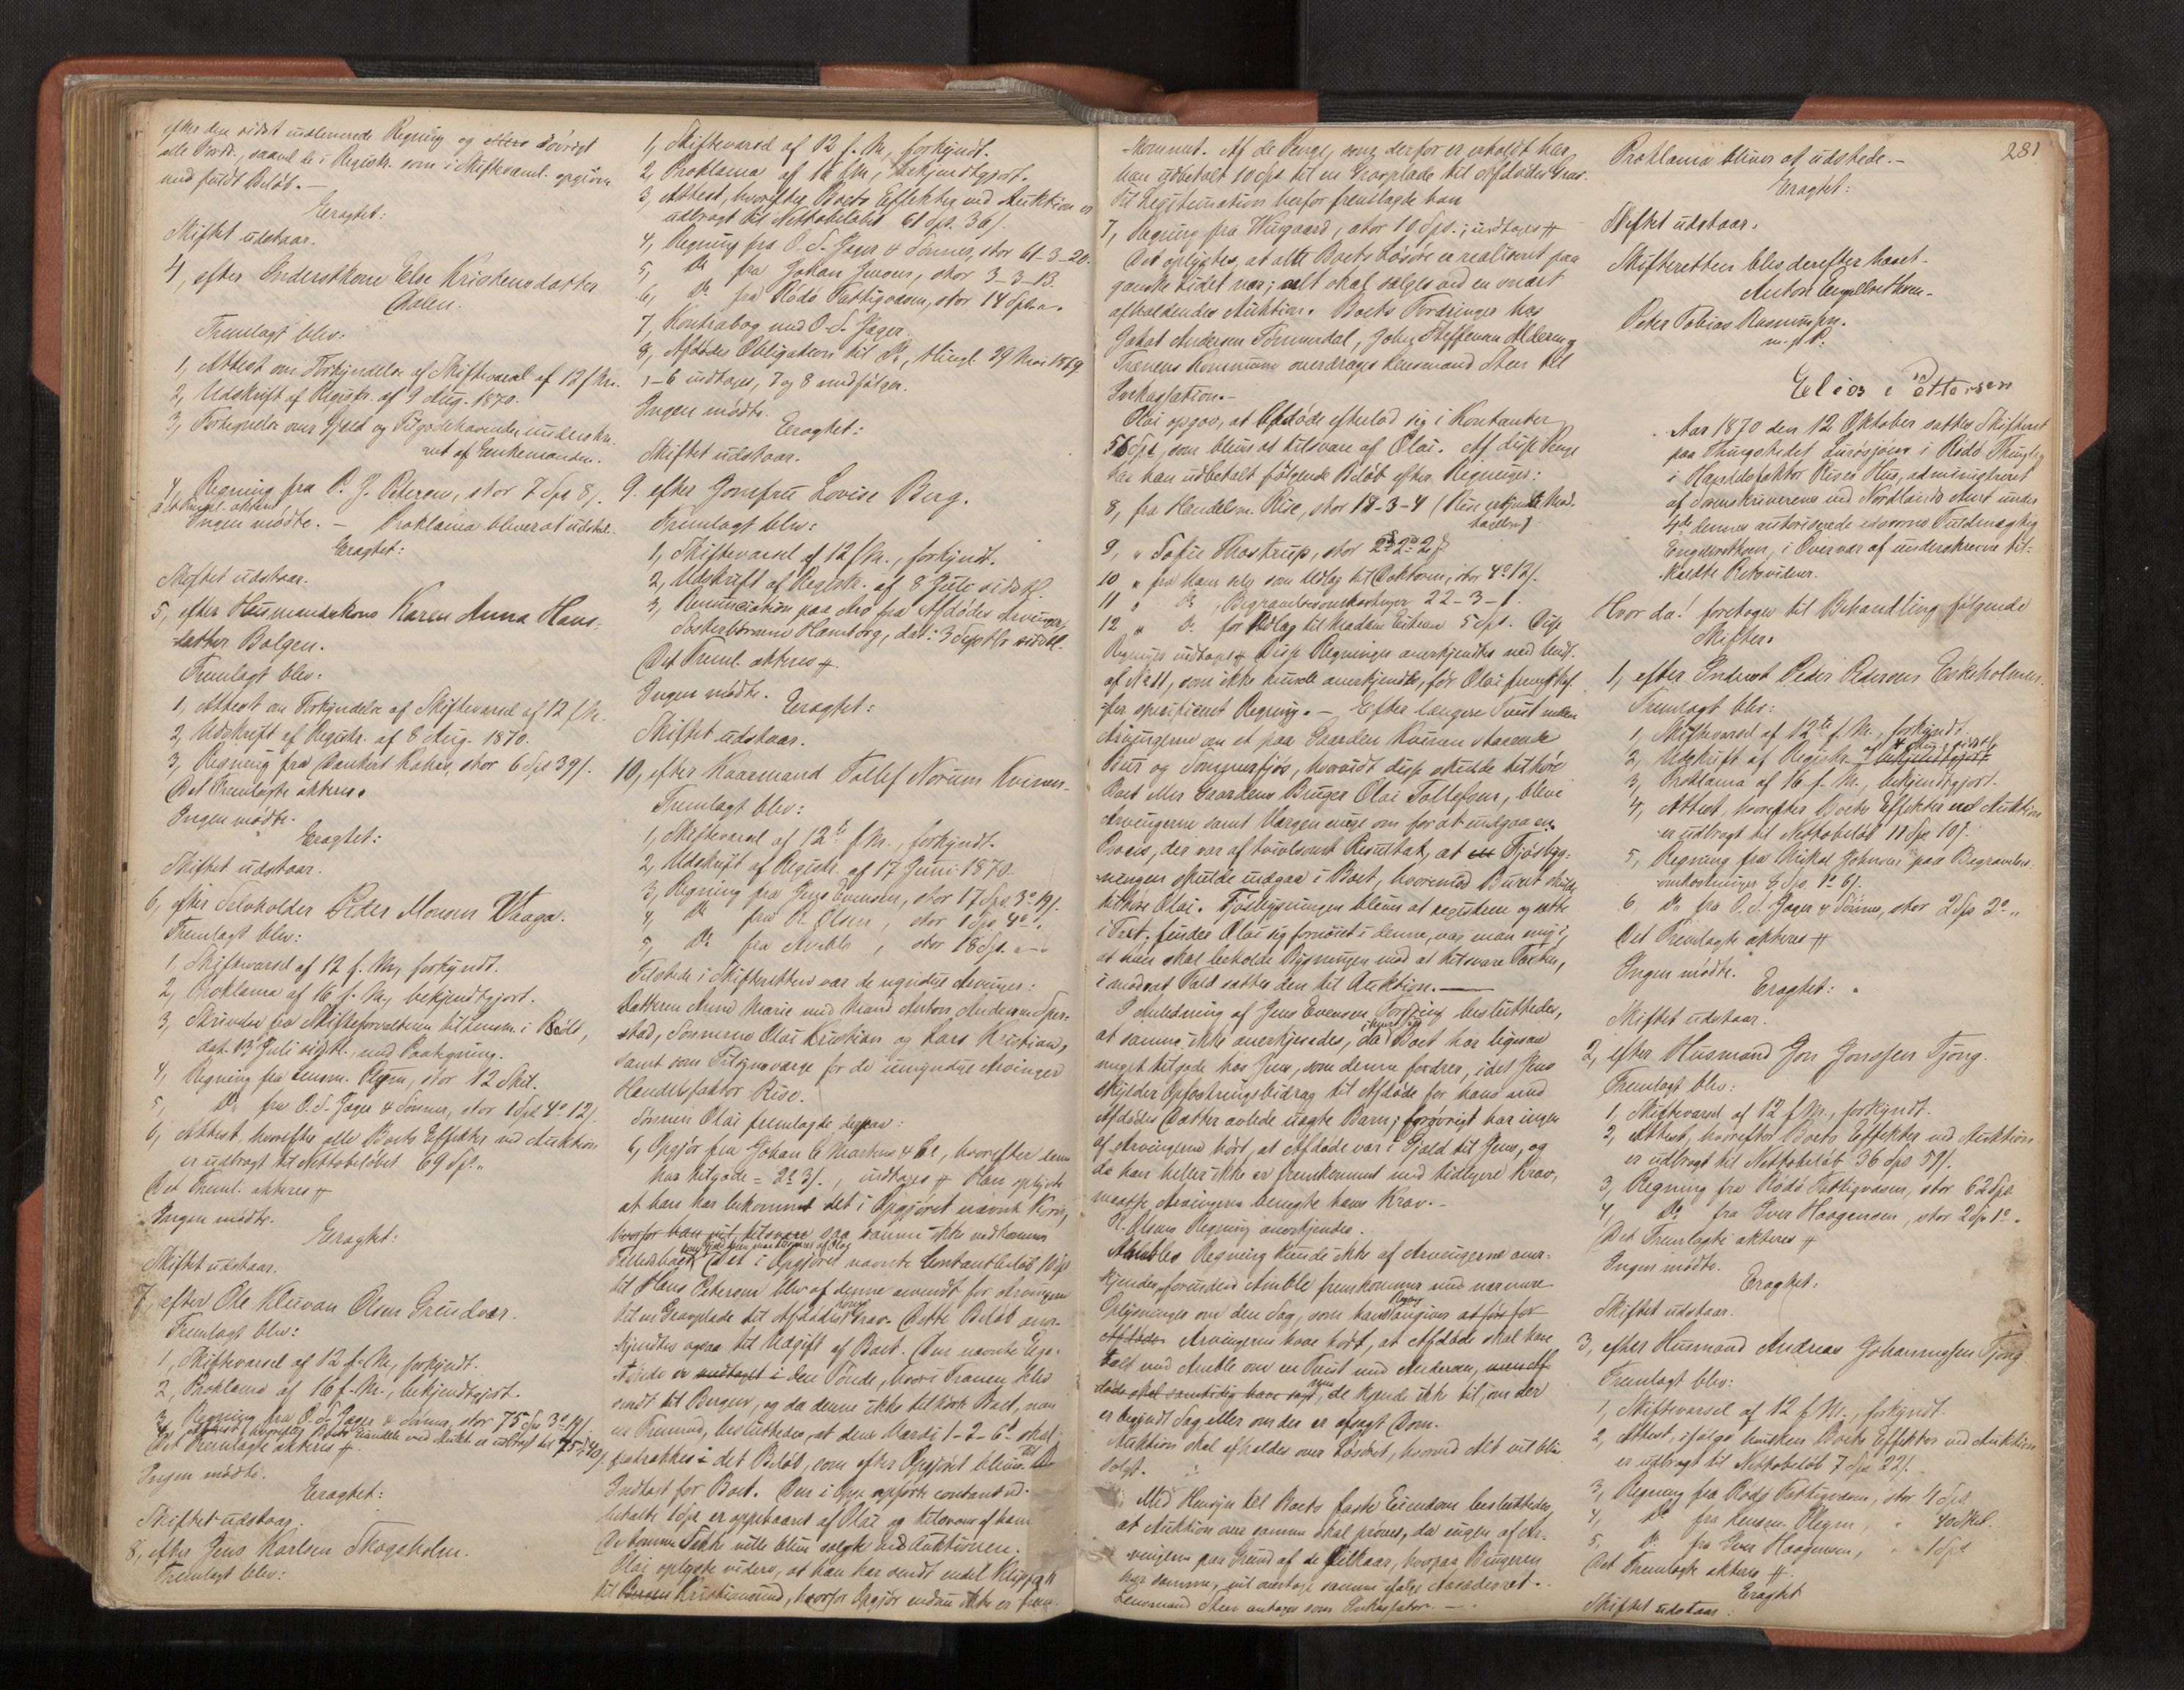 efter den sidst indleverede Regning og iövrigt
alle Fordr., saavel de i Registr. som i Skiftesaml. opgivne
med fuldt Belöb. —
Eragtet:
Skiftet udstaar.
4, efter Inderstkone Else Kristensdatter
Fremlagt blev:
1, Attest om Forkyndelse af Skiftevarsel af 12 f. M.
2, Udskrift af Registr. af 9 Aug. 1870.
3, Fortegnelse over Gjæld og Tilgodehavende underskre-
vet af Enkemanden.
4, Regning fra P. J. Petersen, stor 7 Spd 8 ſ.
Ingen mödte. — Proklama bliver at udstede.
Eragtet:
Skiftet udstaar.
5, efter Husmandskone Karen Anna Hans-
datter Bolgen.
Fremlagt blev:
1, Attest om Forkyndelse af Skiftevarsel af 12 f. M.
2, Udskrift af Registr. af 8 Aug. 1870.
3, Regning fra Dankert Kahrs, stor 6 Spd 39 ſ.
Det Fremlagte akteres.
Ingen mödte.
Eragtet:
Skiftet udstaar.
6, efter Selveholder Peder Monsen Vaaga.
Fremlagt blev:
1, Skiftevarsel af 12 f. M., forkyndt.
2, Proklama af 16 f. M., bekjendtgjort.
3, Skrivelse fra Skifteforvalteren til Lensm. i Bodö,
dat. 13 Juli sidstl., med Paategning.
4, Regning fra Lensm. Plegen, stor 12 Skil.
5, Do fra O. S. Jager & Sönner, stor 1 Spd 4 o 12 ſ.
6, Attest, hvorefter alle Boets Effekter ved Auktion
er udbragt til Nettobelöbet 69 Spd „
Det Freml. akteres #
Ingen mödte.
Eragtet:
Skiftet udstaar.
7, efter Ole Kluvan Olsen Grindvær.
Fremlagt blev:
1, Skiftevarsel af 12 f. M., forkyndt.
2, Proklama af 16 f. M., bekjendtgjort.
3, Regning fra O. S. Jager & Sönner, stor 75 Spd 3 o 19 ſ.
Det Fremlagte akteres #
Ingen mödte.
Eragtet:
Skiftet udstaar.
8, efter Jens Karlsen Skogsholm.
Fremlagt blev:
1, Skiftevarsel af 12 f. M., forkyndt.
2, Proklama af 16 f. M., bekjendtgjort.
3, Attest, hvorefter Boets Effekter ved Auktion er
udbragt til Nettobelöbet 61 Spd. 36 ſ.
4, Regning fra O. S. Jager & Sönner, stor 61-3-20.
5, Do fra Johan Jensen, stor 3-3-13.
6, Do fra Rödö Fattigvæsen, stor 14 Spd. „ „
7, Kontrabog med O. S. Jager.
8, Afdödes Obligation til Do, thingl. 29 Mai 1869
1-6 indtages, 7 og 8 medfölger.
Ingen mödte.
Eragtet:
Skiftet udstaar.
9. efter Jomfru Lovise Berg.
Fremlagt blev:
1, Skiftevarsel af 12 f. M., forkyndt.
2, Udskrift af Registr. af 8 Juli sidstl.
3, Renunciation paa Arv fra Afdödes Arvinger,
Det Freml. akteres #.
Ingen mödte.
Eragtet:
Skiftet udstaar.
10, efter Kaarmand Tollef Norum Kvinen.
Fremlagt blev:
1, Skiftevarsel af 12te f. M., forkyndt.
2, Udskrift af Registr. af 17 Juni 1870.
3, Regning fra Jens Evensen, stor 17 Spd. 3 o 19 ſ.
4, Do fra R. Olsen, stor 1 Spd. 4 o „.
5, Do fra Amble, stor 18 Spd. „ — „
Tilstede i Skifteretten var de myndige Arvinger:
Datteren Anne Marie med Mand Anton Andersen Sper-
stad, Sönnerne Olai Kristian og Lars Kristian,
samt som Tilsynsværge for de umyndige Arvinger
Handelsfaktor Rise.
Sönnen Olai fremlagde derpaa:
6, Opgjör fra Johan C. Martens & Co, hvorefter denne
har tilgode = 2 o 3 ſ., indtages # Olai oplyste
at han har bekommet det i Opgjöret nævnte Korn,
hvorfor han vil tilsvare saa samme ikke vedkommer
Fællesboet. Det i Opgjöret nævnte Contantbelöb 10 Spd
til Hans Petersen blev af denne anvendt for Arvingerne
til en Gravplade til Afdödes Grav. Dette Belöb aner-
kjendtes ogsaa til Udgift af Boet. Den nævnte Ege-
tönde er den Tönde, hvori Tranen blev
sendt til Bergen, og da denne ikke tilhörte Boet, men
en Fremmed, besluttedes, at dens Værdi 1-2-6 d skal
fratrækkes i det Belöb, som efter Opgjöret bliver til
Indtægt for Boet. Den i Opgj. opförte contant ud-
betalte 1 Spd er oppebaaret af Olai og tilsvares af ham
De tomme Sække ville blive solgte ved Auktionen.
Olai oplyste videre, at han har sendt endel Klipfisk
til Kristiansund, hvorfor Opgjör endnu ikke er frem-
281
kommet. Af de Penge, som derfor er erholdt har
han udbetalt 10 Spd. til en Gravplade til Afdödes Grav.
Til Legitimation herfor fremlagde han
7, Regning fra Huvgaard, stor 10 Spd.; indtages #
Det oplystes, at alt Boets Lösöre er realiseret paa
ganske lidet nær; alt skal sælges ved en snart
afholdendes Auktion. Boets Fordringer hos
Jakob Andersen Tönnerdal, John Steffensen Aldern og
Trænens Kommune overdrages Lensmand Steen til
Inkassation. —
Olai opgav, at Afdöde efterlod sig i Kontanter
56 Spd., som blive at tilsvare af Olai. Af disse Penge
har han udbetalt fölgende Belöb efter Regninger:
8, fra Handelsm. Rise, stor 18-3-4
9, „ Sofie Thostrup, stor
10 „ fra ham selv som Udlæg til Doktoren, stor 4 o 12 ſ.
11 „ Do, Begravelsesomkostninger 22-3-1.
12 „ Do for Udlæg til Madam 5 Spd. Disse
Regninger indtages # Disse Regninger anerkjendtes med Undt.
af No 11, som ikke kunde anerkjendes, för Olai fremskaf-
fer specificeret Regning. — Efter længere Tvist mellem
Arvingerne om et paa Gaarden Kvinen staaende
Bur og Sommerfjös, hvorvidt disse skulde tilhöre
Boet eller Gaardens Bruger Olai Tollefsen, bleve
Arvingerne samt Værgen enige om for at undgaa en
Proces, der var af tvivlsomt Resultat, at Fjösbyg-
ningen skulde indgaa i Boet, hvorimod Buret skulde
tilhöre Olai. Fjösbygningen bliver at registrere og sætte
i Taxt. Finder Olai sig fornöiet i denne, var man enig i,
at han skal beholde Bygningen mod at tilsvare Taxten,
i modsat Fald sættes den til Auktion. —
I Anledning af Jens Evensens Fordring besluttedes,
at samme ikke anerkjendes, da Boet har ligesaa
meget tilgode hos Jens, som denne fordrer, idet Jens
skylder Opfostringsbidrag til Afdöde for hans med
Afdödes Datter avlede uægte Barn; forövrigt har ingen
af Arvingerne hört, at Afdöde var i Gjæld til Jens, og
da han heller ikke er fremkommet med tidligere Krav,
maatte Arvingerne benegte hans Krav. —
R. Olsens Regning anerkjendes.
Ambles Regning kunde ikke af Arvingerne aner-
kjendes, forinden Amble fremkommer med nærmere
Oplysninger om den Sag, som hans Regning angiver at för for
Afdöde. Arvingerne have hört, at Afdöde skal have
talt med Amble om en Tvist med Andersen, men Af-
döde skal samtidig have sagt, de kjende ikke til, om der
er begyndt Sag eller om der er afsagt Dom.
Auktion skal afholdes over Lösöret, hvorved Alt vil blive
solgt.
Med Hensyn til Boets faste Eiendom besluttedes,
at Auktion over samme skal pröves, da ingen af Ar-
vingerne paa Grund af de Vilkaar, hvorpaa Brugeren
har samme, vil overtage samme ifölge Aasædesret. —
Lensmand Steen antages som Inkassator. —
Proklama bliver at udstede. —
Eragtet:
Skiftet udstaar.
Skifteretten blev derefter hævet.
Anton Engelbrethsen.
Peter Tobias Rasmussen.
m. f. P.
Elias Pettersen
Aar 1870 den 12 Oktober sattes Skifteret
paa Thingstedet Lurösjöen i Rödö Thinglag
i Handelsfaktor Rises Hus, administreret
af Sorenskriveren ved Nordlands Amt under
4de dennes autoriserede edsvorne Fuldmægtig
Engelbrethsen, i Overvær af underskrevne til-
kaldte Retsvidner.
Hvor da! foretoges til Behandling fölgende
Skifter.
1, efter Inderst Peder Pedersen Eskeholmen.
Fremlagt blev:
1, Skiftevarsel af 12te f. M., forkyndt.
2, Udskrift af Registr. bekjendtgjort
3, Proklama af 16 f. M., bekjendtgjort.
4, Attest, hvorefter Boets Effekter ved Auktion
er udbragt til Nettobelöb 11 Spd 10 ſ.
5, Regning fra Mikal Johnsen paa Begravelses-
omkostninger 8 Spd. 1 o 6 ſ.
6, Do fra O. S. Jager & Sönner, stor 2 Spd 2 o „
Det Fremlagte akteres #
Ingen mödte.
Eragtet:
Skiftet udstaar.
2, efter Husmand Jon Jonsen Tjong.
Fremlagt blev:
1, Skiftevarsel af 12 f. M., forkyndt.
2, Attest, hvorefter Boets Effekter ved Auktion
er udbragt til Nettobelöb 36 Spd 59 ſ.
3, Regning fra Rödö Fattigvæsen, stor 62 Spd
4, Do fra Iver Haagensen, stor 2 Spd 1 o.
Det Fremlagte akteres #
Ingen mödte.
Eragtet:
Skiftet udstaar.
3, efter Husmand Andreas Johannessen Tjong
Fremlagt blev:
1, Skiftevarsel af 12 f. M., forkyndt.
2, Attest, ifölge hvilken Boets Effekter ved Auktion
er udbragt til Nettobelöb 7 Spd 22 ſ.
3, Regning fra Rödö Fattigvæsen, stor 4 Spd
4, Do fra Lensm. Plegen, „ 40 Skil.
5, Do fra Iver Haagensen, „ 1 Spd
Det Fremlagte akteres #.
Eragtet
Skiftet udstaar: